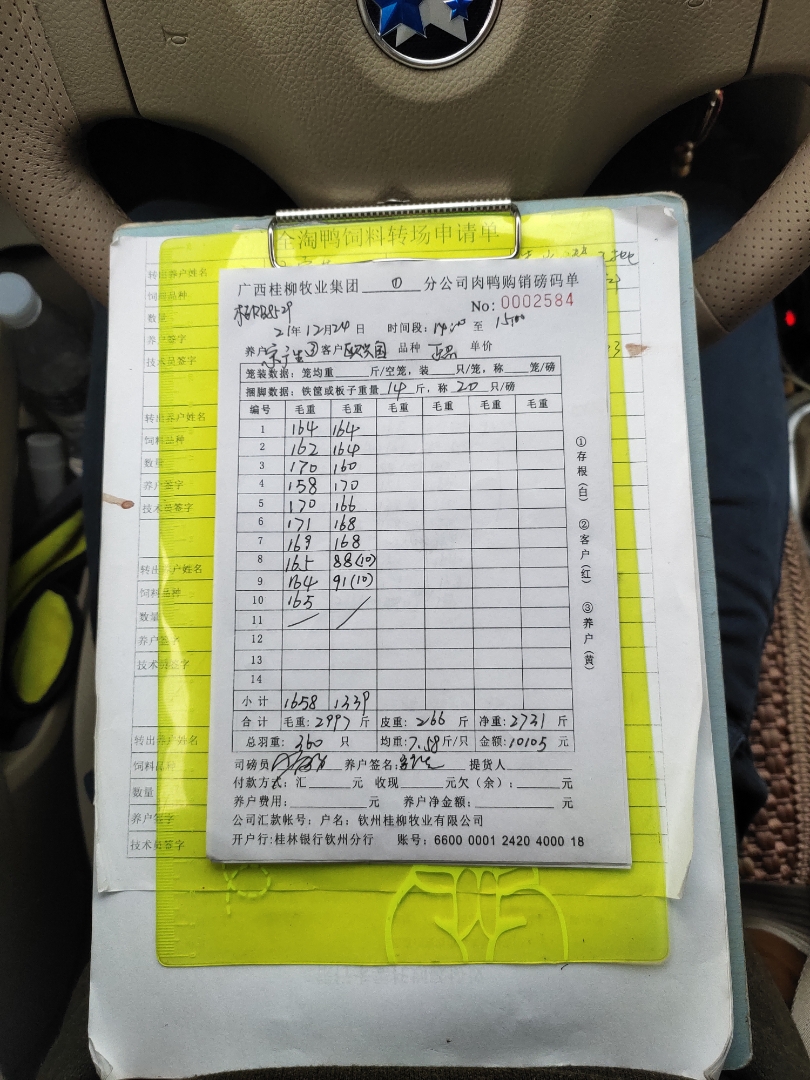 全淘鸭饲料转场申请单
广西桂柳牧业集团 分公司肉鸭购销磅码单
No: 0002584
21年12月24日 时间段: 14:00 至 15:00
养户 客户 品种 单价
笼装数据: 笼均重 斤/空笼, 装 只/笼, 称 笼/磅
捆脚数据: 铁筐或板子重量 14 斤, 称 20 只/磅
编号 毛重 毛重 毛重 毛重 毛重 毛重
1 164 164
2 162 164
3 170 160
4 158 170
5 170 166
6 171 168
7 169 168
8 165 88(10)
9 164 91(10)
10 165
11
12
13
14
小计 1658 1339
合计 毛重: 2997 斤 皮重: 266 斤 净重: 2731 斤
总羽重: 360 只 均重: 7.58 斤/只 金额: 10105 元
司磅员 养户签名: 提货人
付款方式: 汇 元 收现 元欠(余): 元
养户费用: 元 养户净金额: 元
公司汇款帐号: 户名: 钦州桂柳牧业有限公司
开户行:桂林银行钦州分行 账号: 6600 0001 2420 4000 18
①存根(白) ②客户(红) ③养户(黄)
转出养户姓名
饲料品种
数量
养户签字
技术员签字
转出养户姓名
饲料品种
数量
养户签字
技术员签字
转出养户姓名
饲料品种
数量
养户签字
技术员签字
转出养户姓名
饲料品种
数量
养户签字
技术员签字